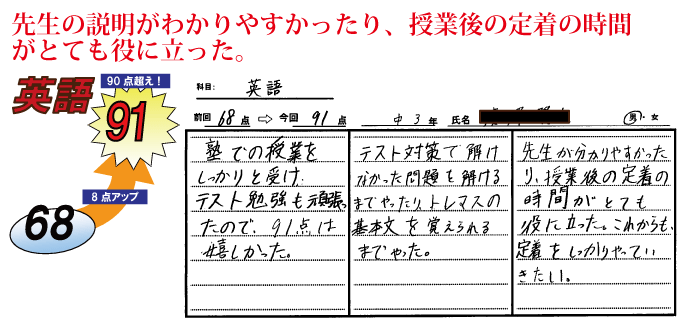 先生の説明がわかりやすかったり、授業後の定着の時間
がとても役に立った。
英語
90点超え！
91
8点アップ
68
科目: 英語
前回 68点 ⇨ 今回 91点 中3年 氏名 男・女
塾での授業を
しっかりと受け、
テスト勉強も頑張っ
たので、91点は
嬉しかった。
テスト対策で解け
なかった問題を解ける
までやったり、トレマスの
基本文を覚えられる
までやった。
先生が分かりやすかった
り、授業後の定着の
時間がとても
役に立った。これからも、
定着をしっかりやってい
きたい。